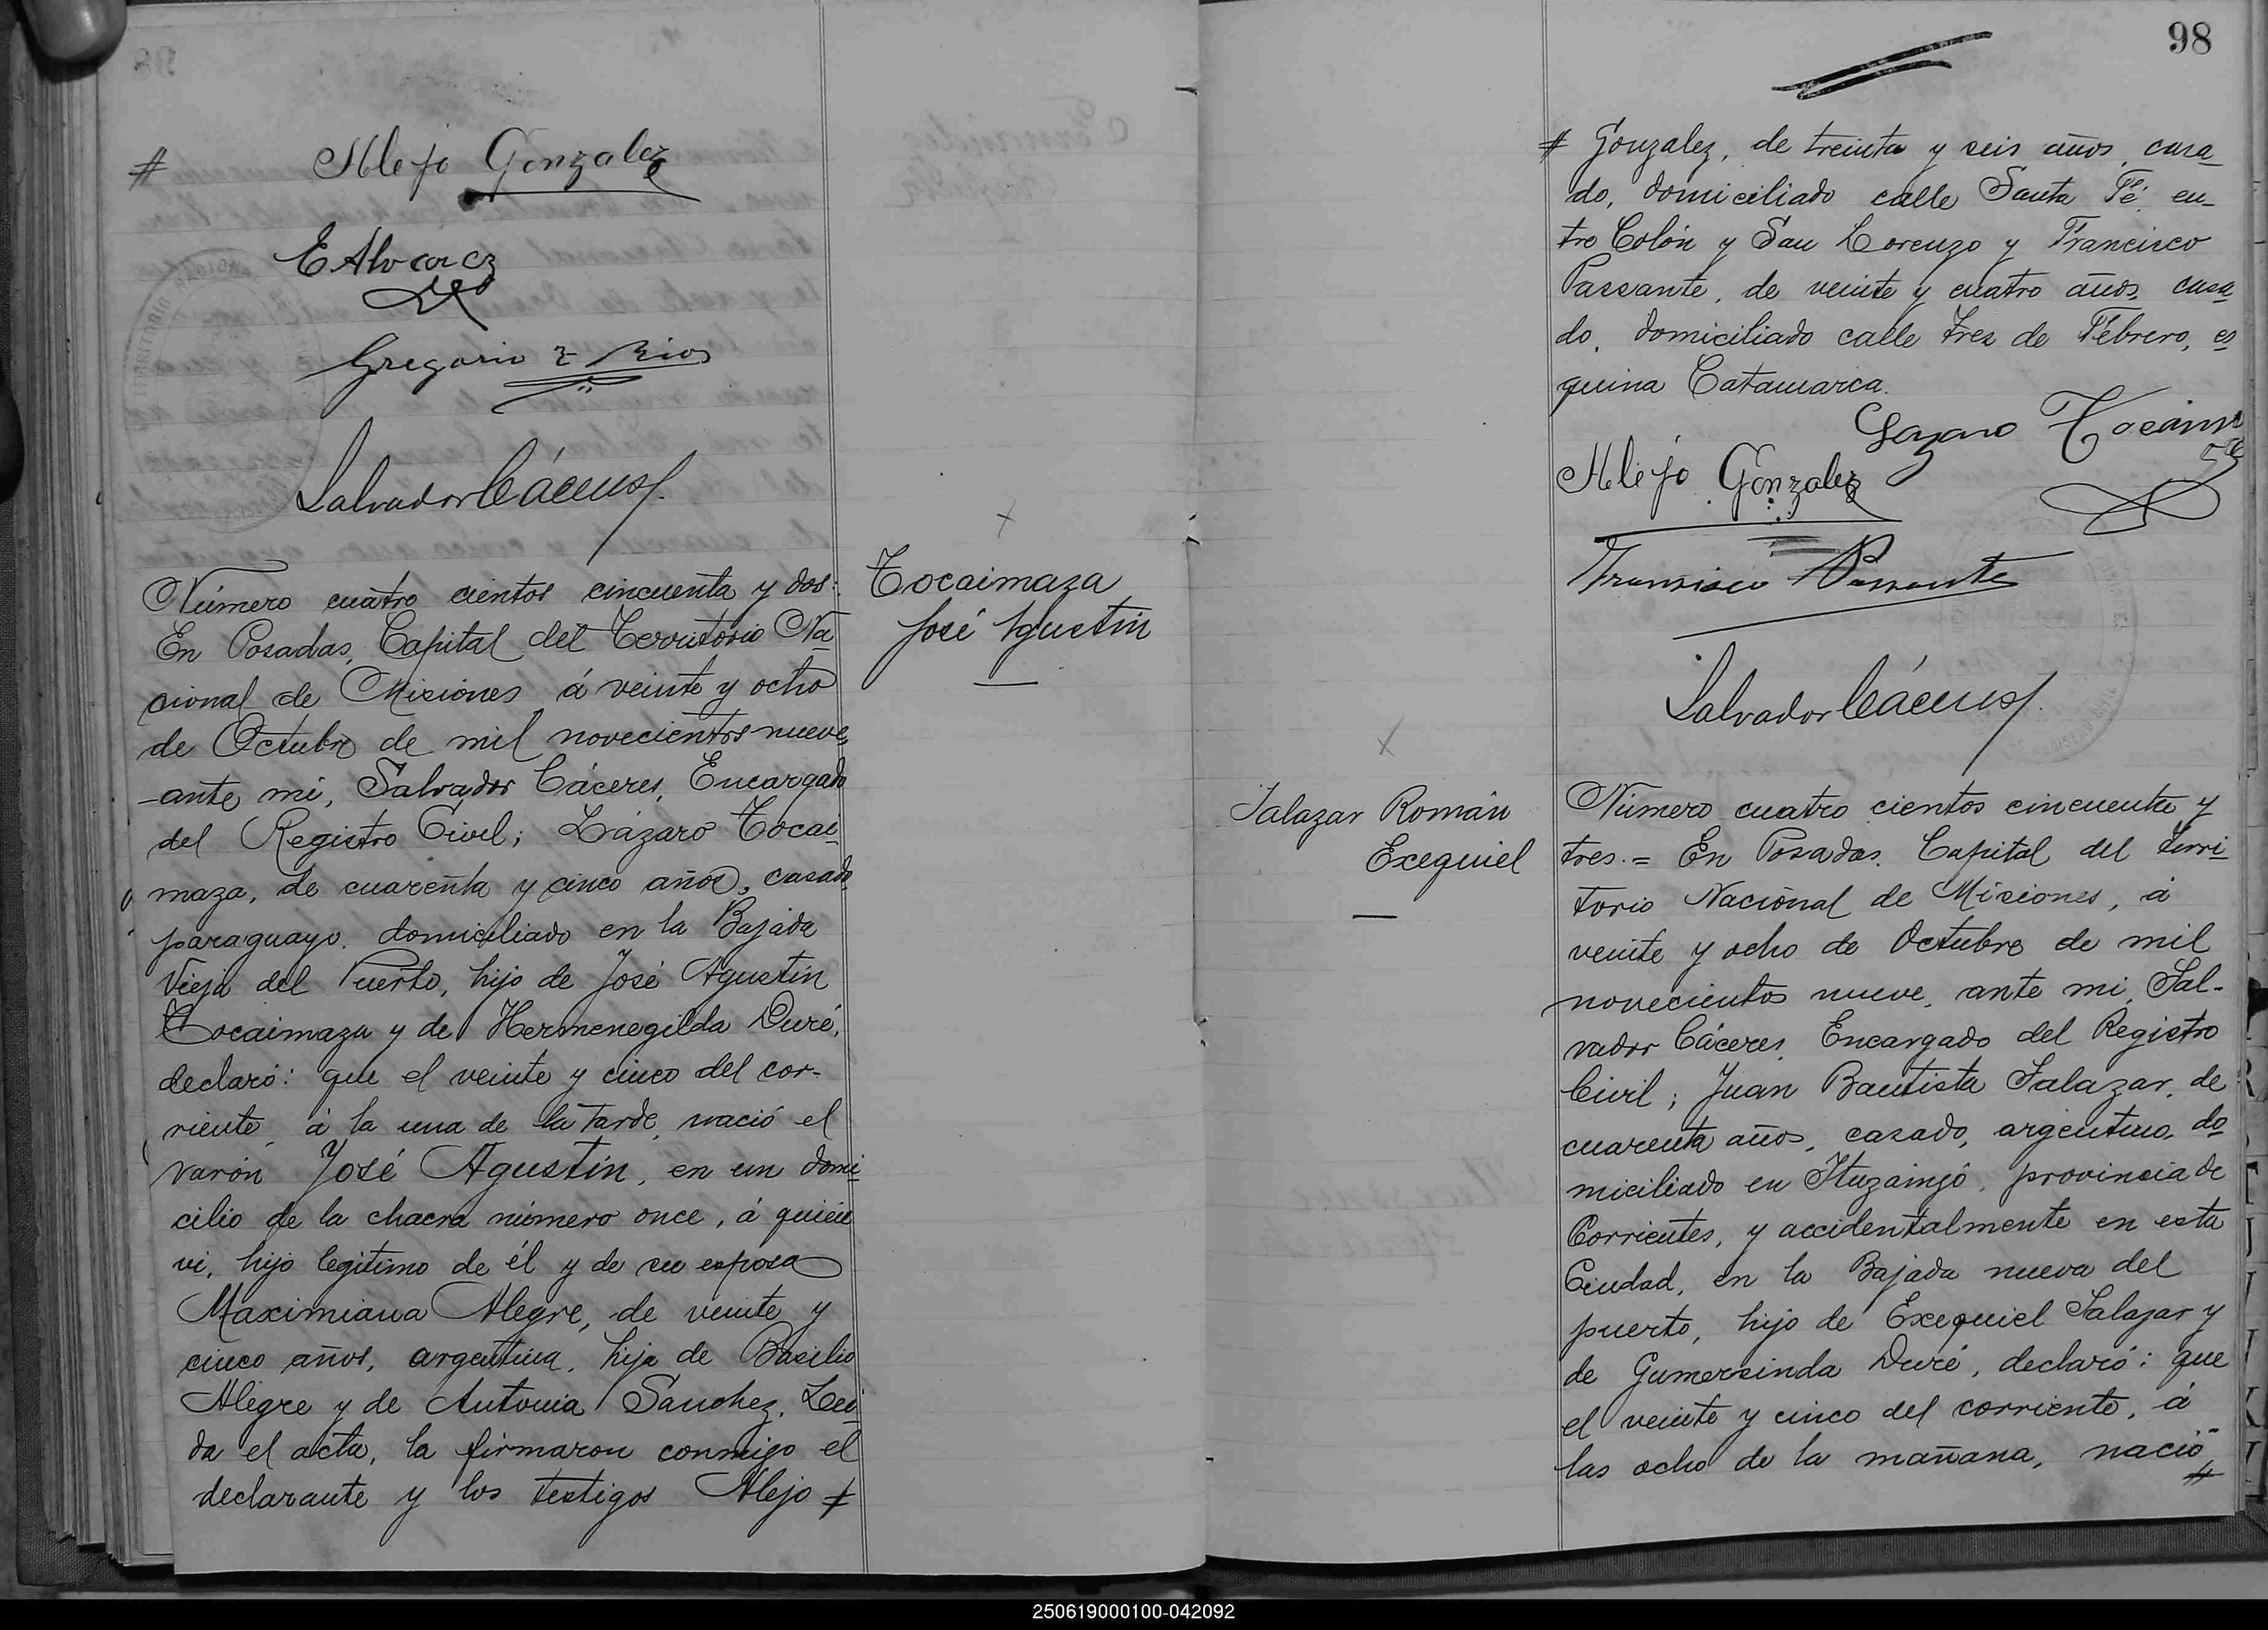 # Alejo Gonzalez
E Alvarez
Gregorio Z Rios
Salvador Cáceres
Número cuatro cientos cincuenta y dos:
En Posadas, Capital del Territorio Na
cional de Misiones á veinte y ocho
de Octubre de mil novecientos nueve,
ante mi, Salvador Cáceres, Encargado
del Registro Civil; Lázaro Tocai
maza, de cuarenta y cinco años, casado
paraguayo, domiciliado en la Bajada
Vieja del Puerto, hijo de José Agustin
Tocaimaza y de Hermenegilda Duré,
declaró: que el veinte y cinco del cor-
riente, á la una de la tarde, nació el
varón José Agustin, en un domi
cilio de la chacra número once, á quien
vi, hijo legitimo de él y de su esposa
Maximiana Alegre, de veinte y
cinco años, argentina, hija de Basilio
Alegre y de Antonia Sanchez. Lei
da el acta, la firmaron conmigo el
declarante y los testigos Alejo #
Tocaimaza
José Agustin
98
# Gonzalez, de treinta y seis años, casa
do, domiciliado calle Santa Fé en-
tre Colón y San Lorenzo y Francisco
Passante, de veinte y cuatro años, casa
do, domiciliado calle tres de Febrero, es
quina Catamarca.
Lazaro
Alejo Gonzalez
Francisco Passante
Salvador Cáceres
Salazar Román
Exequiel
Número cuatro cientos cincuenta y
tres.= En Posadas, Capital del Terri
torio Nacional de Misiones, á
veinte y ocho de Octubre de mil
novecientos nueve, ante mi, Sal-
vador Cáceres, Encargado del Registro
Civil; Juan Bautista Salazar, de
cuarenta años, casado, argentino, do
miciliado en Ituzaingó, provincia de
Corrientes, y accidentalmente en esta
Ciudad, en la Bajada nueva del
puerto, hijo de Exequiel Salazar y
de Gumersinda Duré, declaró: que
el veinte y cinco del corriente, á
las ocho de la mañana, nació
#
250619000100-042092